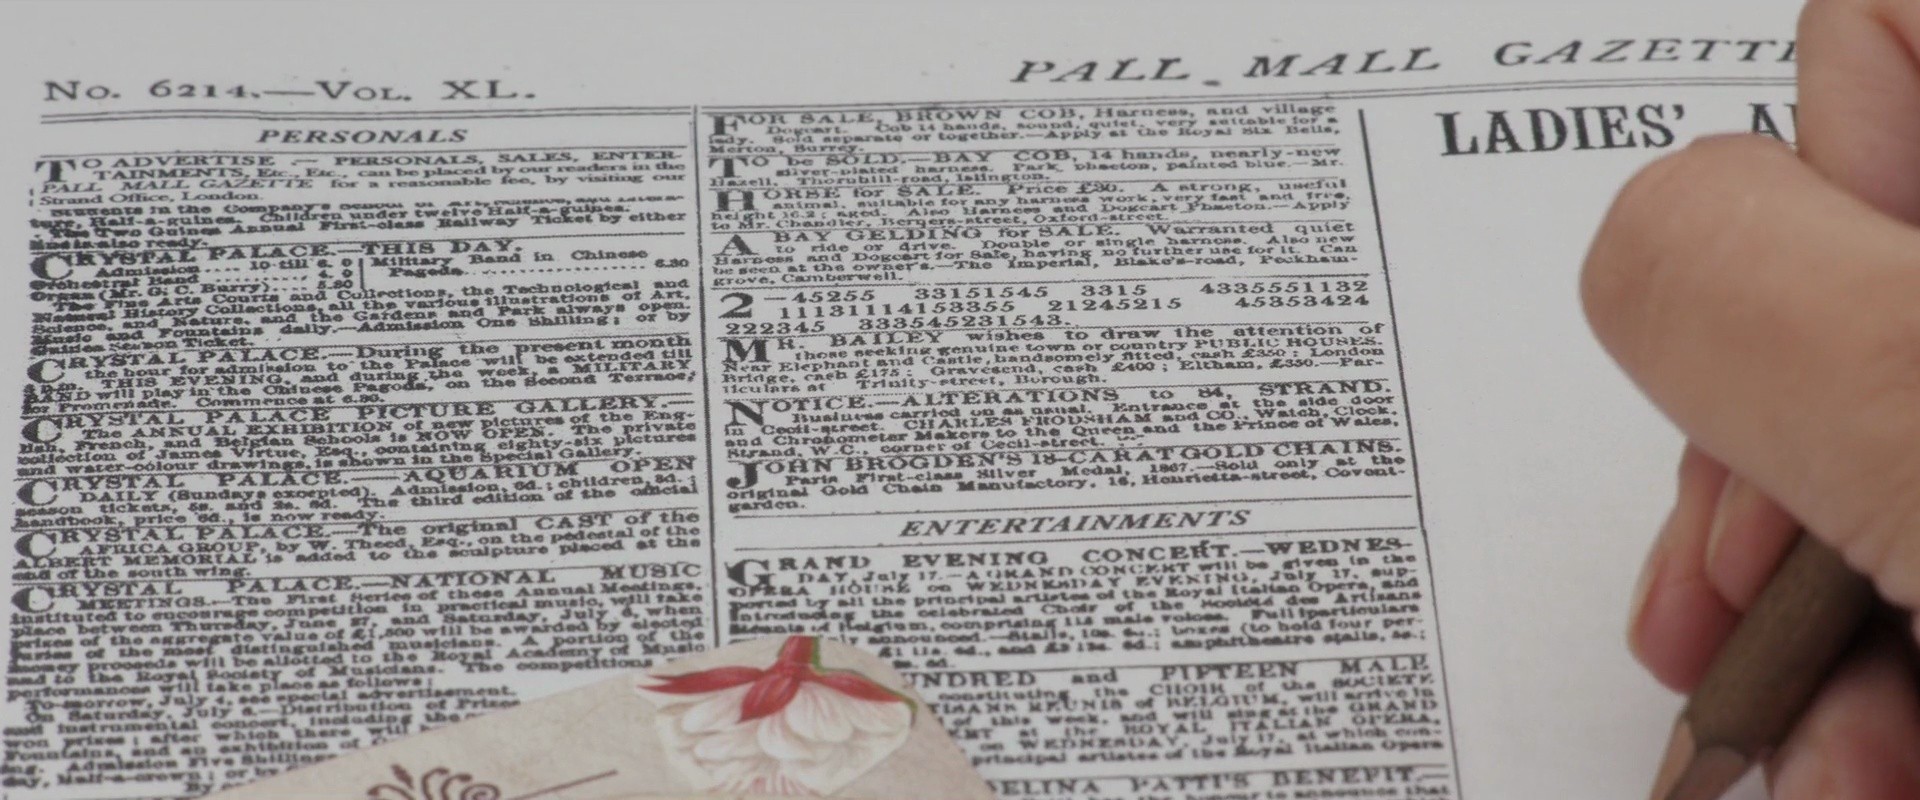 No. 6214.—Vol. XL.
PALL MALL GAZETTE
PERSONALS
TO ADVERTISE — PERSONALS, SALES, ENTER-
TAINMENTS, Etc., Etc., can be placed by our readers in the
PALL MALL GAZETTE for a reasonable fee, by visiting our
Strand Office, London.
Students in the Company's School of Art,
ture, Half-a-guinea. Children under twelve Half-a-guinea.
The Two Guinea Annual First-class Railway Ticket by either
line is also ready.
CRYSTAL PALACE.—THIS DAY.
Admission .... 10 till 6. 0
Orchestral Band ..... 4. 0
Organ (Mr. G. C. Barry).... 5.30
Military Band in Chinese
Pagoda.................. 6.30
The Fine Arts Courts and Collections, the Technological and
Natural History Collections, all the various illustrations of Art,
Science, and Nature, and the Gardens and Park always open.
Music and Fountains daily.—Admission One Shilling; or by
Guinea Season Ticket.
CRYSTAL PALACE.—During the present month
the hour for admission to the Palace will be extended till
8 p.m. THIS EVENING, and during the week, a MILITARY
BAND will play in the Chinese Pagoda, on the Second Terrace,
for Promenade. Commence at 6.30.
CRYSTAL PALACE PICTURE GALLERY.—
The ANNUAL EXHIBITION of new pictures of the Eng-
lish, French, and Belgian Schools is NOW OPEN. The private
collection of James Virtue, Esq., containing eighty-six pictures
and water-colour drawings, is shown in the Special Gallery.
CRYSTAL PALACE.—AQUARIUM OPEN
DAILY (Sundays excepted). Admission, 6d.; children, 3d.;
season tickets, 5s. and 2s. 6d. The third edition of the official
handbook, price 6d., is now ready.
CRYSTAL PALACE.—The original CAST of the
AFRICA GROUP, by W. Theed, Esq., on the pedestal of the
ALBERT MEMORIAL is added to the sculpture placed at the
end of the south wing.
CRYSTAL PALACE.—NATIONAL MUSIC
MEETINGS.—The First Series of these Annual Meetings,
instituted to encourage competition in practical music, will take
place between Thursday, June 27, and Saturday, July 6, when
prizes of the aggregate value of £1,500 will be awarded by elected
juries of the most distinguished musicians. A portion of the
money proceeds will be allotted to the Royal Academy of Music
and to the Royal Society of Musicians. The competitions
performances will take place as follows:
To-morrow, July 4, see special advertisement.
On Saturday, July 6.—Distribution of Prizes
and Instrumental concert, including the
won prizes; after which there will
Fountains, and an exhibition of
ing. Admission Five Shillings
day, Half-a-crown; or by
By
FOR SALE, BROWN COB, Harness, and village
Dogcart. Cob 14 hands, sound, quiet, very suitable for a
lady. Sold separate or together.—Apply at the Royal Six Bells,
Merton, Surrey.
TO be SOLD.—BAY COB, 14 hands, nearly-new
silver-plated harness. Park phaeton, painted blue.—Mr.
Hazell, Thornhill-road, Islington.
HORSE for SALE. Price £30. A strong, useful
animal, suitable for any harness work, very fast and free,
height 16.2; aged. Also Harness and Dogcart Phaeton.—Apply
to Mr. Chandler, Berners-street, Oxford-street.
A BAY GELDING for SALE. Warranted quiet
to ride or drive. Double or single harness. Also new
Harness and Dogcart for Sale, having no further use for it. Can
be seen at the owner's.—The Imperial, Blake's-road, Peckham-
grove, Camberwell.
2 —45255 33151545 3315 4335551132
11131114153355 21245215 45353424
222345 333545231543.
MR. BAILEY wishes to draw the attention of
those seeking genuine town or country PUBLIC HOUSES.
Near Elephant and Castle, handsomely fitted, cash £350; London
Bridge, cash £175; Gravesend, cash £400; Eltham, £350.—Par-
ticulars at Trinity-street, Borough.
NOTICE.—ALTERATIONS to 84, STRAND.
Business carried on as usual. Entrance at the side door
in Cecil-street. CHARLES FRODSHAM and CO., Watch, Clock,
and Chronometer Makers to the Queen and the Prince of Wales,
Strand, W.C., corner of Cecil-street.
JOHN BROGDEN'S 18-CARAT GOLD CHAINS.
Paris First-class Silver Medal, 1867.—Sold only at the
original Gold Chain Manufactory, 16, Henrietta-street, Covent-
garden.
ENTERTAINMENTS
GRAND EVENING CONCERT.—WEDNES-
DAY, July 17.—A GRAND CONCERT will be given in the
OPERA HOUSE on WEDNESDAY EVENING, July 17, sup-
ported by all the principal artistes of the Royal Italian Opera, and
introducing the celebrated Choir of the Société des Artisans
of Belgium, comprising 115 male voices. Full particulars
announced.—Stalls, boxes (to hold four per-
amphitheatre stalls, 5s.;
UNDRED and FIFTEEN MALE
constituting the CHOIR of the SOCIETY
REUNIS of BELGIUM, will arrive in
of this week, and will sing at the GRAND
at the ROYAL ITALIAN OPERA,
on WEDNESDAY, July 17, at which con-
principal artistes of the Royal Italian Opera
ELINA PATTI'S BENEFIT.—
the honour to announce that
LADIES' A